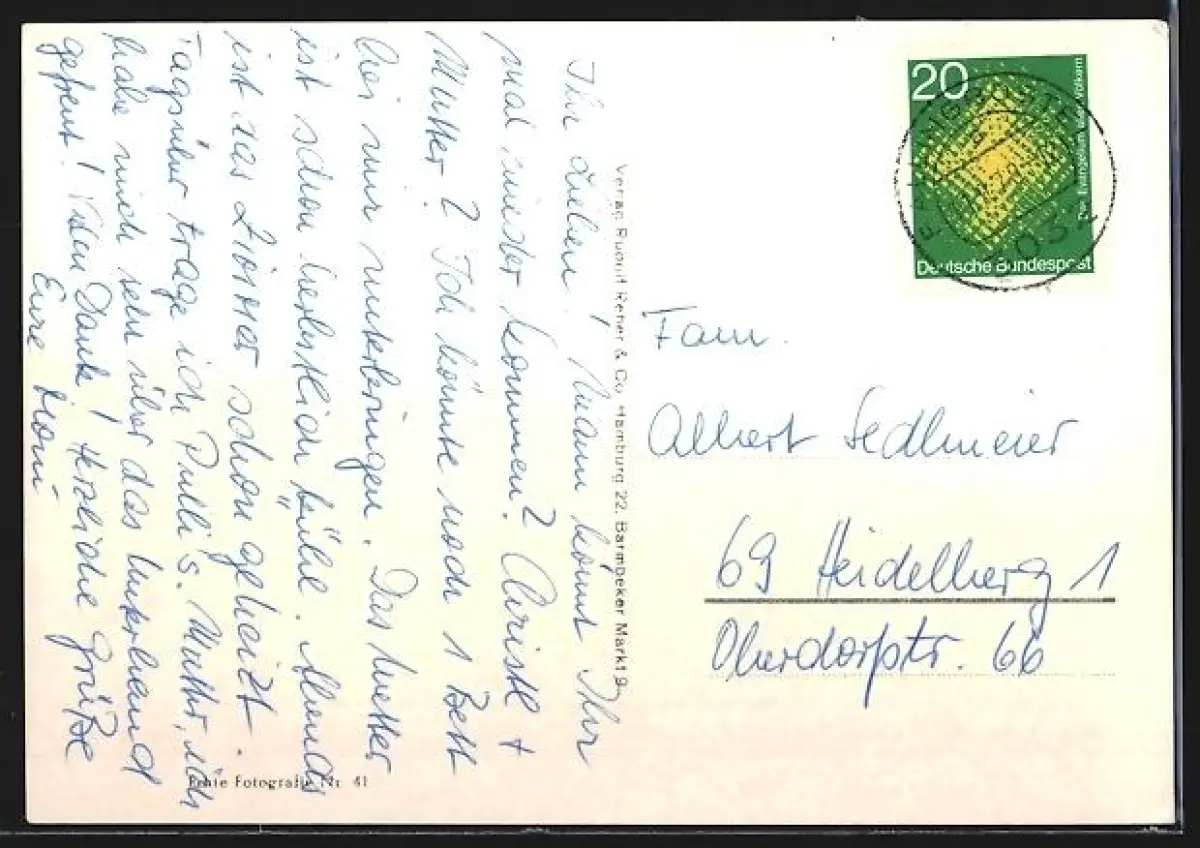 Ihr Lieben! Wann könnt Ihr
mal wieder kommen? Christl +
Mutter? Ich könnte noch 1 Bett
bei mir unterbringen. Das Wetter
ist schon herbstlich kühl. Abends
ist das Zimmer schon geheizt.
Tagsüber trage ich Pulli's. Mutter, ich
habe mich sehr über das Unterhemd
gefreut! Vielen Dank! Herzliche Grüße
Eure
Echte Fotografie Nr. 41
Verlag Rudolf Reher & Co. Hamburg 22. Barmbeker Markt 9
20
Das Evangelium den Völkern
Deutsche Bundespost
Fam.
Albert Sedlmeier
69 Heidelberg 1
Oberdorfstr. 66